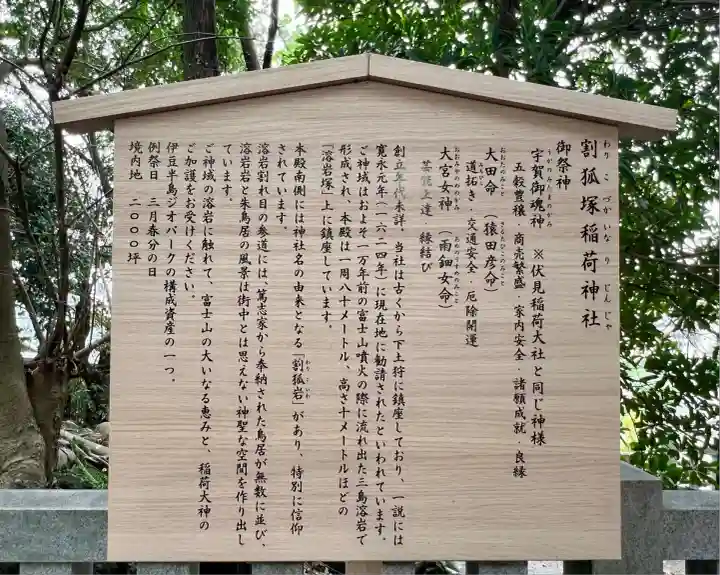 割狐塚稲荷神社
わりこづかいなりじんじゃ
御祭神
宇賀御魂神 ※伏見稲荷大社と同じ神様
うかのみたまのかみ
五穀豊穣・商売繁盛・家内安全・諸願成就・良縁
大田命（猿田彦命）
おおたのみこと さるたひこのみこと
道拓き・交通安全・厄除開運
大宮女神（雨鈿女命）
おおみやのめのかみ あめのうずめのみこと
芸能上達 縁結び
創立年代未詳、当社は古くから下土狩に鎮座しており、一説には
寛永元年（一六二四年）に現在地に勧請されたといわれています。
ご神域はおよそ一万年前の富士山噴火の際に流れ出た三島溶岩で
形成され、本殿は一周八十メートル、高さ十メートルほどの
「溶岩塚」上に鎮座しています。
本殿南側には神社名の由来となる「割狐岩」があり、特別に信仰
されています。
溶岩割れ目の参道には、篤志家から奉納された鳥居が無数に並び、
溶岩岩と朱鳥居の風景は街中とは思えない神聖な空間を作り出し
ています。
ご神域の溶岩に触れて、富士山の大いなる恵みと、稲荷大神の
ご加護をお受けください。
伊豆半島ジオパークの構成資産の一つ。
例祭日 三月春分の日
境内地 二〇〇〇坪